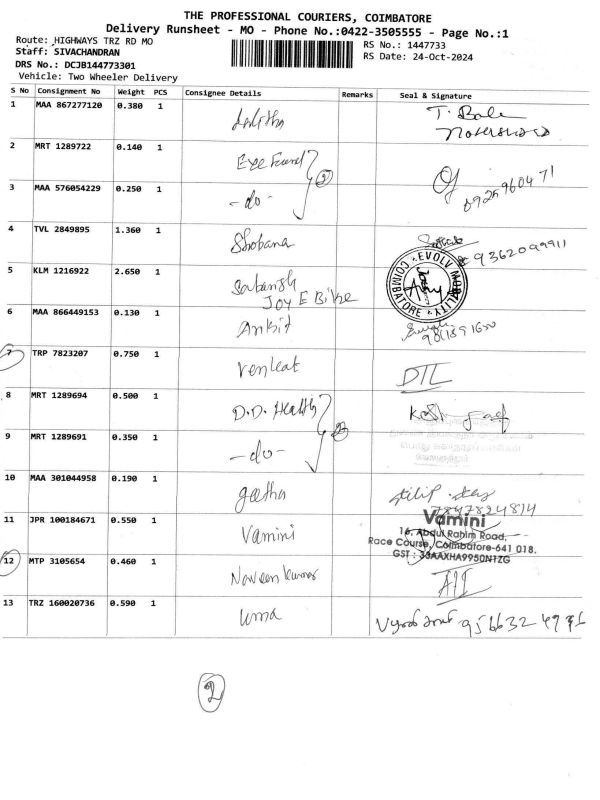 THE PROFESSIONAL COURIERS, COIMBATORE
Delivery Runsheet - MO - Phone No.:0422-3505555 - Page No.:1
Route: HIGHWAYS TRZ RD MO
RS No.: 1447733
Staff: SIVACHANDRAN
RS Date: 24-Oct-2024
DRS No.: DCJB144773301
Vehicle: Two Wheeler Delivery
S No Consignment No Weight PCS Consignee Details Remarks Seal & Signature
1 MAA 867277120 0.380 1 Lalitha T. Bala
2 MRT 1289722 0.140 1
3 MAA 576054229 0.250 1 -do- 2
4 TVL 2849895 1.360 1 Shobana 9362099911
5 KLM 1216922 2.650 1 JOY E Bike EVOLV MOBILITY COIMBATORE
6 MAA 866449153 0.130 1 Ankit
7 TRP 7823207 0.750 1 Venkat DTL
8 MRT 1289694 0.500 1 D.D. Health
9 MRT 1289691 0.350 1 -do- 2
10 MAA 301044958 0.190 1 geetha
7847824814
11 JPR 100184671 0.550 1 Vamini Vamini
16, Abdul Rahim Road,
Race Course, Coimbatore-641 018.
GST : 33AAXHA9950N1ZG
12 MTP 3105654 0.460 1 Naveen kumar
13 TRZ 160020736 0.590 1 uma
2